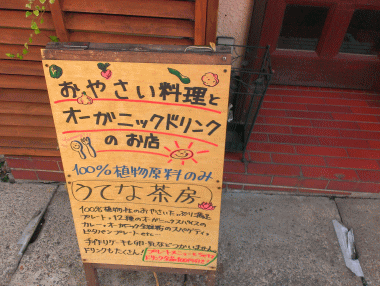 おやさい料理と
オーガニックドリンク
のお店
100%植物原料のみ
うてな茶房
100%植物性のおやさいたっぷり満足
プレート。12種のオーガニックスパイスの
カレー。オーガニック全粒粉のスパゲティ。
ピタパンプレート etc…
手作りケーキも卵・乳などつかいません
ドリンクもたくさん!
プレートメニューとご一緒で